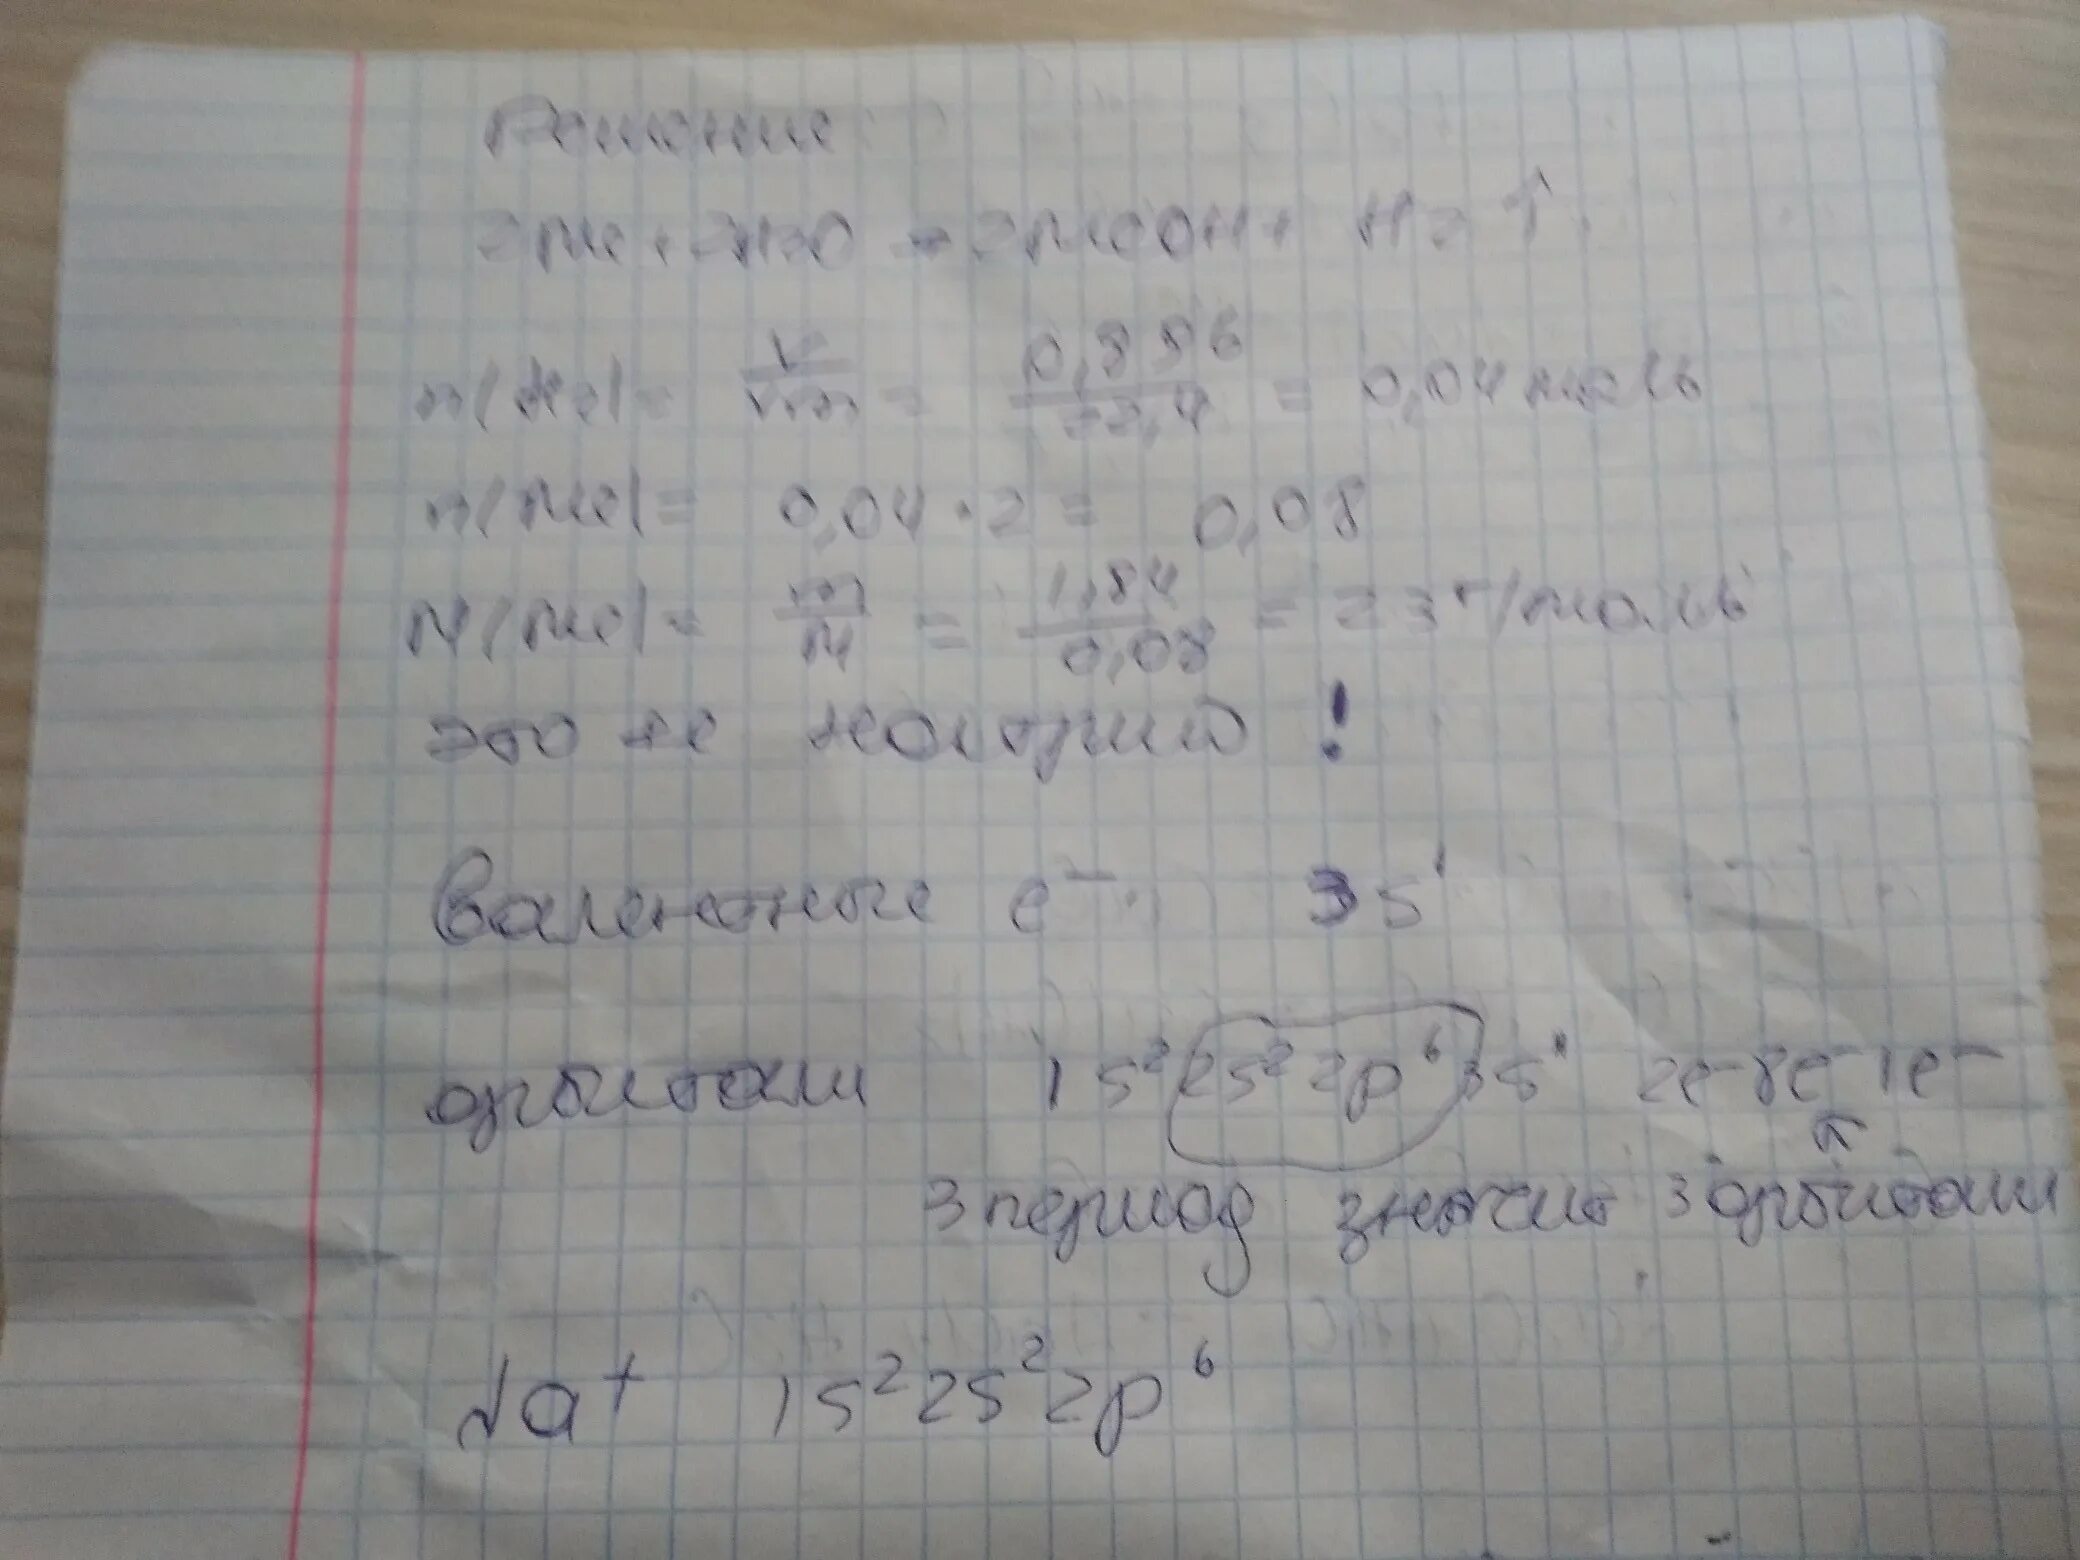 Решение
2Me + 2H2O → 2MeOH + H2 ↑
n(H2) = V/Vm = 0,896/22,4 = 0,04 моль
n(Me) = 0,04 · 2 = 0,08
M(Me) = m/n = 1,84/0,08 = 23 г/моль
это натрий !
Валентные e⁻ 3s¹
орбитали 1s² 2s² 2p⁶ 3s¹ 2e⁻ 8e⁻ 1e⁻
3 период значит 3 орбитали
Na⁺ 1s² 2s² 2p⁶